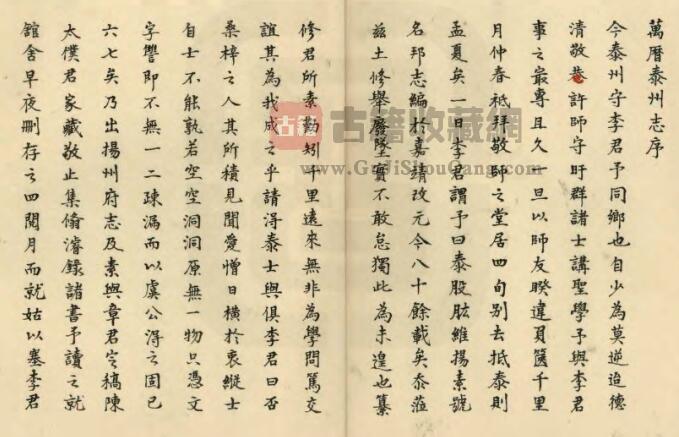 萬曆泰州志序
今泰州守李君予同鄉也自少為莫逆迨德
清敬菴許師守盱群諸士講聖學予與李君
事之最專且久一旦以師友暌違負篋千里
月仲春祗拜敬師之堂居四旬别去抵泰則
孟夏矣一日李君謂予曰泰股肱維揚素號
名邦志編於嘉靖改元今八十餘載矣忝蒞
茲土修舉廢墜實不敢怠獨此為未遑也纂
修君所素勤矧千里遠來無非為學問篤交
誼其為我成之乎請得泰士與俱李君曰否
桑梓之人其所積見聞愛憎日橫於衷縱士
自士不能孰若空空洞洞原無一物只憑文
字讐即不無一二疎漏而以虞公得之固已
六七矣乃出揚州府志及素與章君定稿陳
太僕君家藏敬止集偹濬錄諸書予讀之就
舘舍早夜刪存之四閱月而就姑以塞李君
古籍
古籍收藏網
www.GuJiShouCang.com